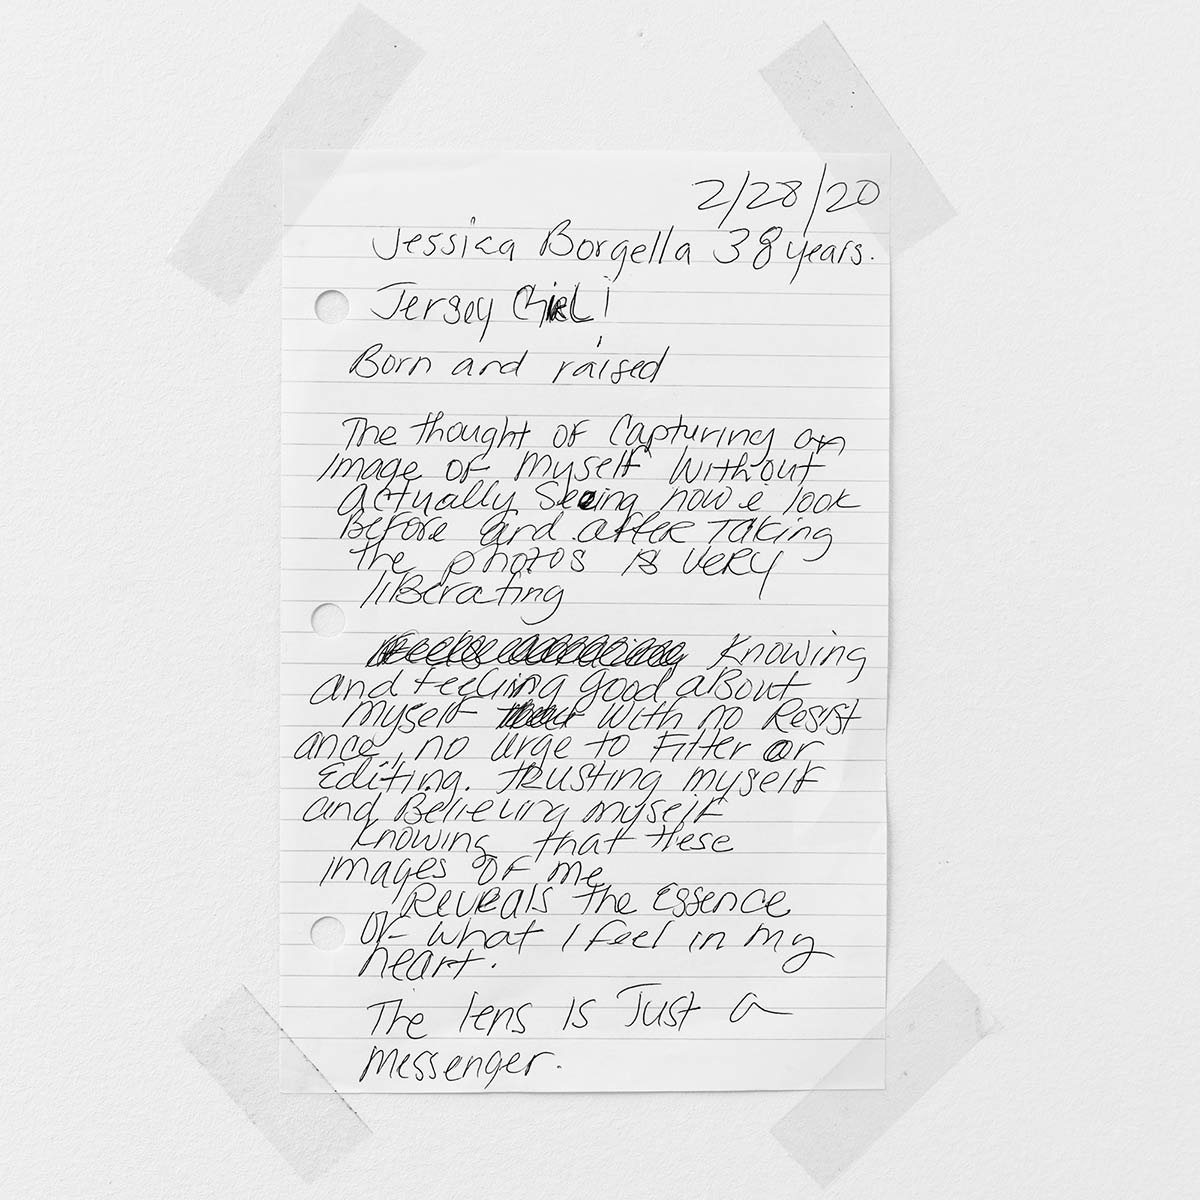 2/28/20
Jessica Borgella 38 years.
Jersey Girl!
Born and raised
The thought of Capturing an
image of myself without
actually Seeing how i look
Before and after Taking
the photos is very
liberating
Knowing
and feeling good about
myself with no Resist
ance, no urge to Filter or
Editing. Trusting myself
and Believing myself
Knowing that these
images of me
Reveals the Essence
of what I feel in my
heart.
The lens is Just a
messenger.